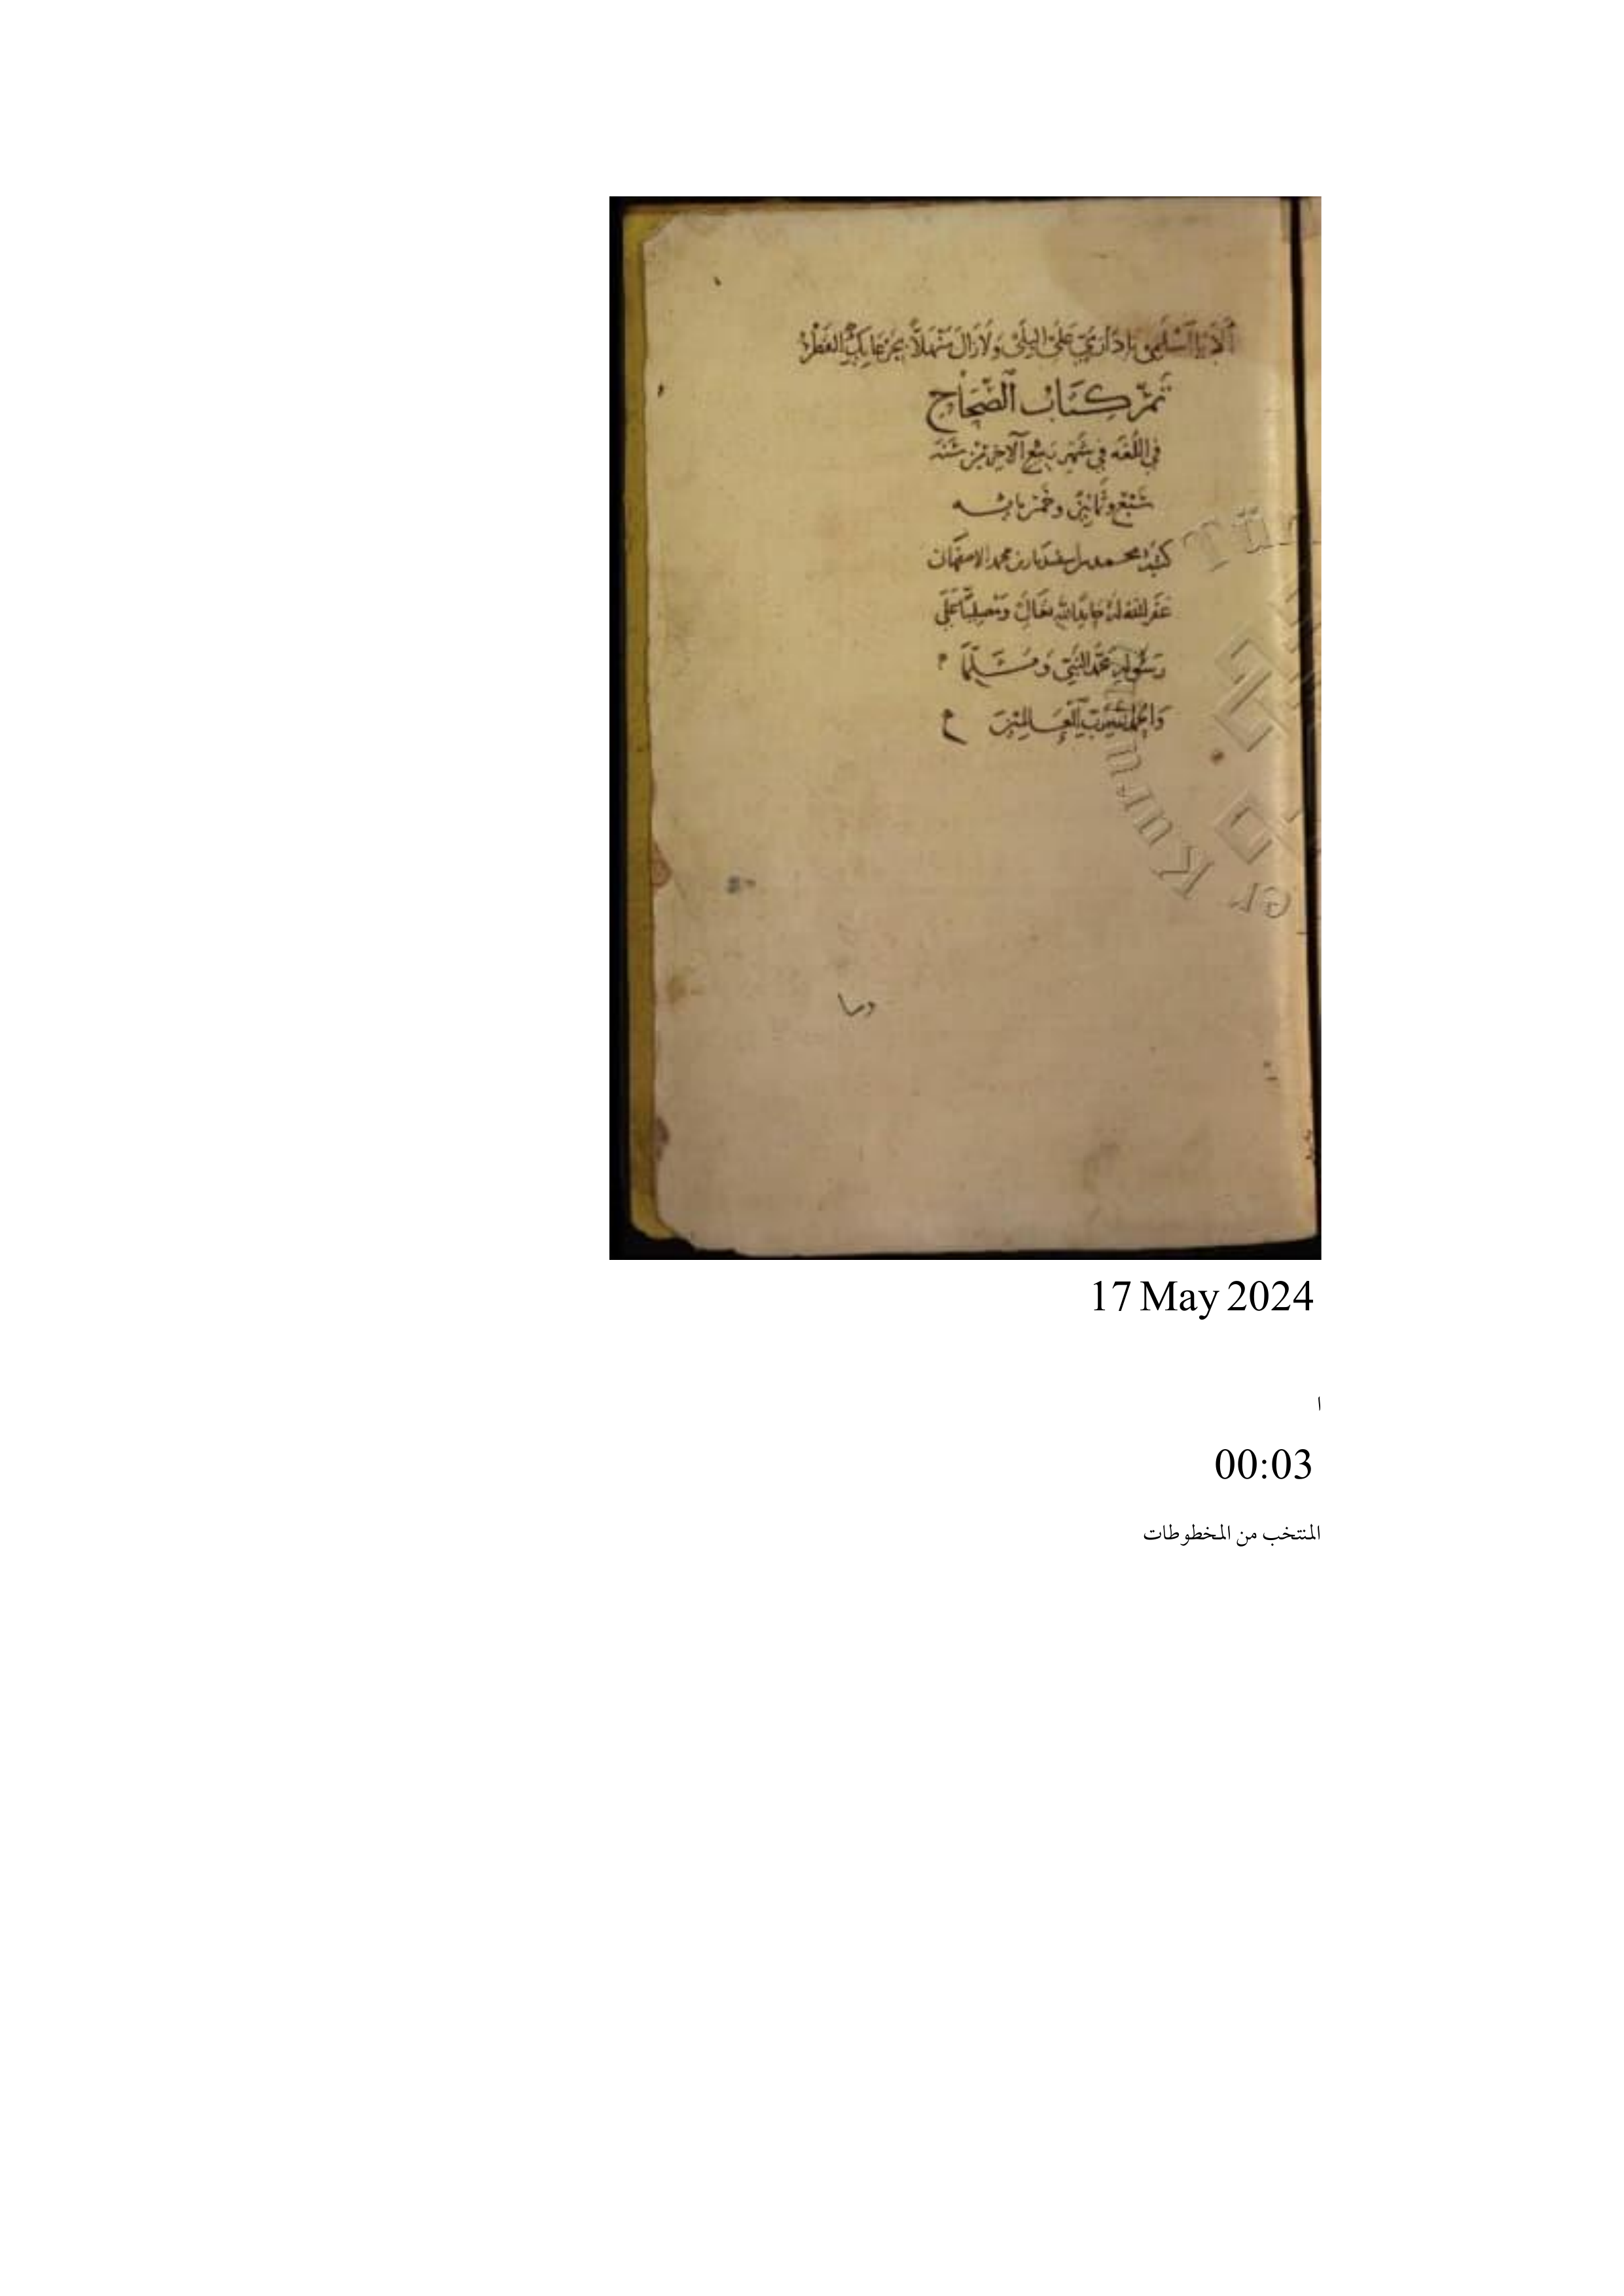 أَلَا يَا ٱسْلَمِي يَا دَارَ مَيَّ عَلَى البِلَى وَلَا زَالَ مُنْهَلًّا بِجَرْعَائِكِ القَطْرُ
تَمَّ كِتَابُ الصِّحَاحِ
في اللُّغَه في شهر ربيع الآخر من سَنَه
سَبْع وثمانين وخمسمايه
كتبه محمد بن اسفنديار بن محمد الاصفهاني
غفر الله له حامدًا لله تعالى ومصليًا على
رسوله محمد النبي ومسلمًا
والحمد لله رب العالمين
er Kurumu
17 May 2024
ا
00:03
المنتخب من المخطوطات